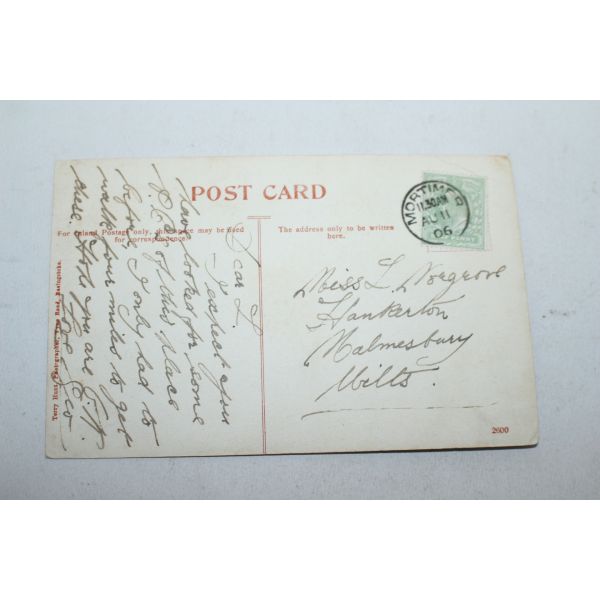 POST CARD
For Inland Postage only, this space may be used
for correspondence.
The address only to be written
here.
MORTIMER
1.30AM
AU 11
06
PENNY
Miss L Norgrove
Hankerton
Malmesbury
Wilts.
Dear L.
I expect you
have looked for some
P.Cs of this place
before, I only had to
walk four miles to get
these. Hope you are
Love
Terry Hunt, Photographer, Road, Basingstoke.
2600